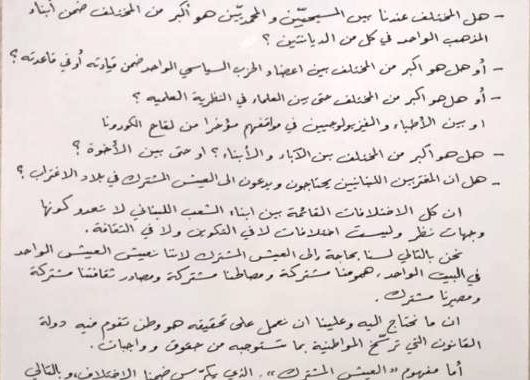 - هل المختلف عندنا بين المسيحيّين والمحمديّين هو أكبر من المختلف ضمن أبناء
المذهب الواحد في كل من الديانتين ؟
- أو هل هو أكبر من المختلف بين اعضاء الحزب السياسي الواحد ضمن قيادته أو في قاعدته ؟
- أو هل هو أكبر من المختلف حتى بين العلماء في النظرية العلمية ؟
او بين الأطباء والفيزيولوجيين في مواقفهم مؤخرا من لقاح الكورونا
- هل هو أكبر من المختلف بين الآباء والأبناء ؟ او حتى بين الأخوة ؟
- هل ان المغتربين اللبنانيين يحتاجون ويدعون الى العيش المشترك في بلاد الاغتراب ؟
ان كل الاختلافات القائمة بين ابناء الشعب اللبناني لا تعدو كونها
وجهات نظر وليست اختلافات لا في التكوين ولا في الثقافة .
نحن بالتالي لسنا بحاجة إلى العيش المشترك لاننا نعيش العيش الواحد
في البيت الواحد ، همومنا مشتركة ومصالحنا مشتركة ومصادر ثقافتنا مشتركة
ومصيرنا مشترك .
ان ما نحتاج اليه وعلينا ان نعمل على تحقيقه هو وطن تقوم فيه دولة
القانون التي ترسّخ المواطنية بما تستوجبه من حقوق وواجبات .
أما مفهوم "العيش المشترك" ، الذي يكرّس ضمنا الاختلاف ، وبالتالي